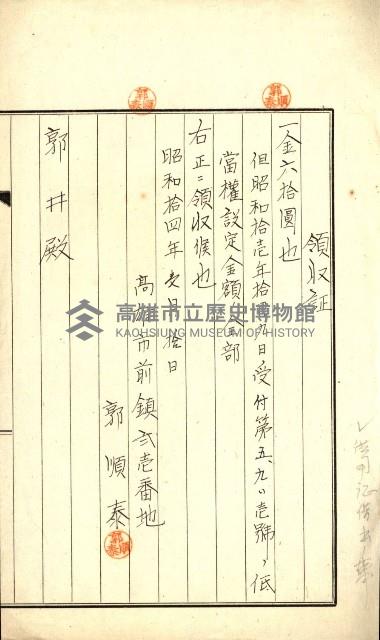 領收証
一金六拾圓也
但昭和拾壱年拾月九日受付第五九〇壱號ノ低
當權設定金額全部
右正ニ領收候也
昭和拾四年弐月拾日
高雄市前鎮弐壱番地
郭順泰
郭井殿
高雄市立歷史博物館
KAOHSIUNG MUSEUM OF HISTORY
郭順泰
郭順泰
郭順泰